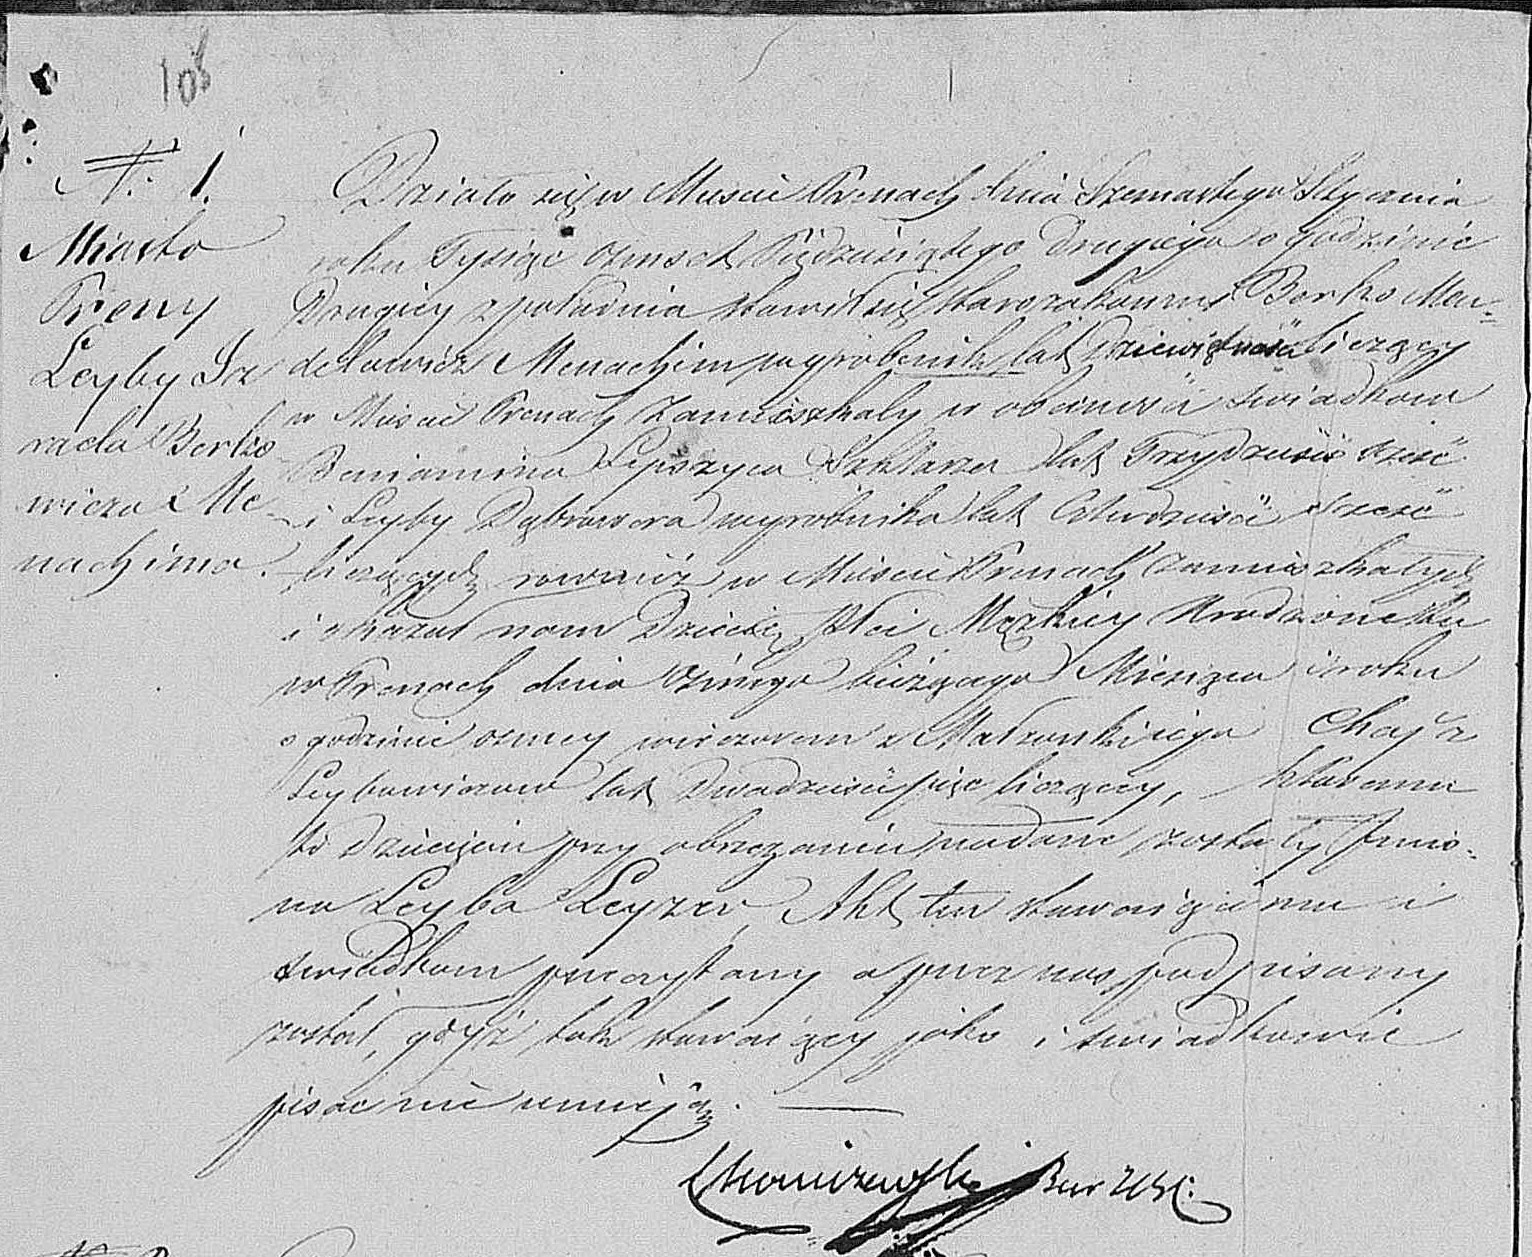 108
N. 1.
Miasto
Preny
Leyby Iz
raela Berko
wicza Me-
nachima.
Działo się w Mieście Prenach dnia Szesnastego Stycznia
roku Tysiąc Ośmset Pięćdziesiątego Drugiego o godzinie
Drugiey z południa stawił się starozakonny Berko Mor-
delowicz Menachim wyrobnik lat liczący
w Mieście Prenach zamieszkały w obecności świadków
Beniamina Lipszyca Szklarza lat Trzydzieści sześć
i Leyby Dąbrowera wyrobnika lat Czterdzieści sześć
liczących również w Mieście Prenach zamieszkałych
i okazał nam Dziecię płci Męzkiey Urodzone tu
w Prenach dnia Ósmego bieżącego Miesiąca i roku
o godzinie osmey wieczorem z Małżonki iego Chaja z
Leybowiczow lat Dwadzieścia pięć liczącey, któremu
to dziecięciu przy obrzezaniu nadane zostały Imio-
na Leyba Leyzer, Akt ten stawaiącemu i
świadkom przeczytany a przez nas podpisany
został, gdyż tak stawaiący jako i świadkowie
pisać nie umieją.
Bur